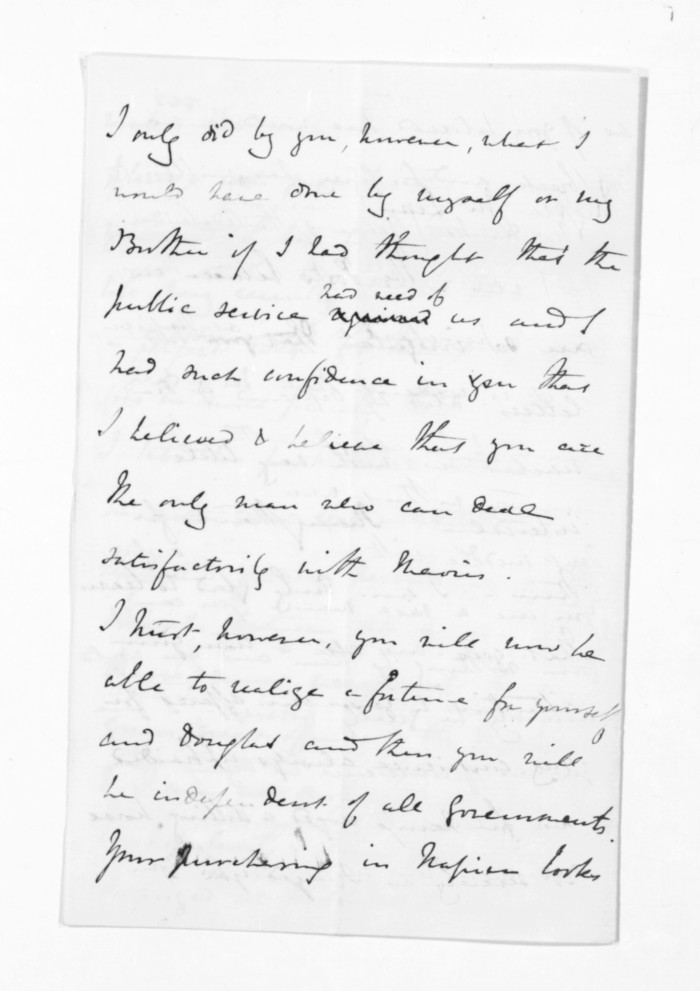 I only did by you, however, what I
would have done by myself or my
Brother if I had thought that the
had need of
public service required us and I
had such confidence in you that
I believed & believe that you are
the only man who can deal
satisfactorily with Maoris.
I trust, however, you will now be
able to realize a fortune for yourself
and Douglas and then you will
be independent of all Governments.
Your purchasing in Napier looks